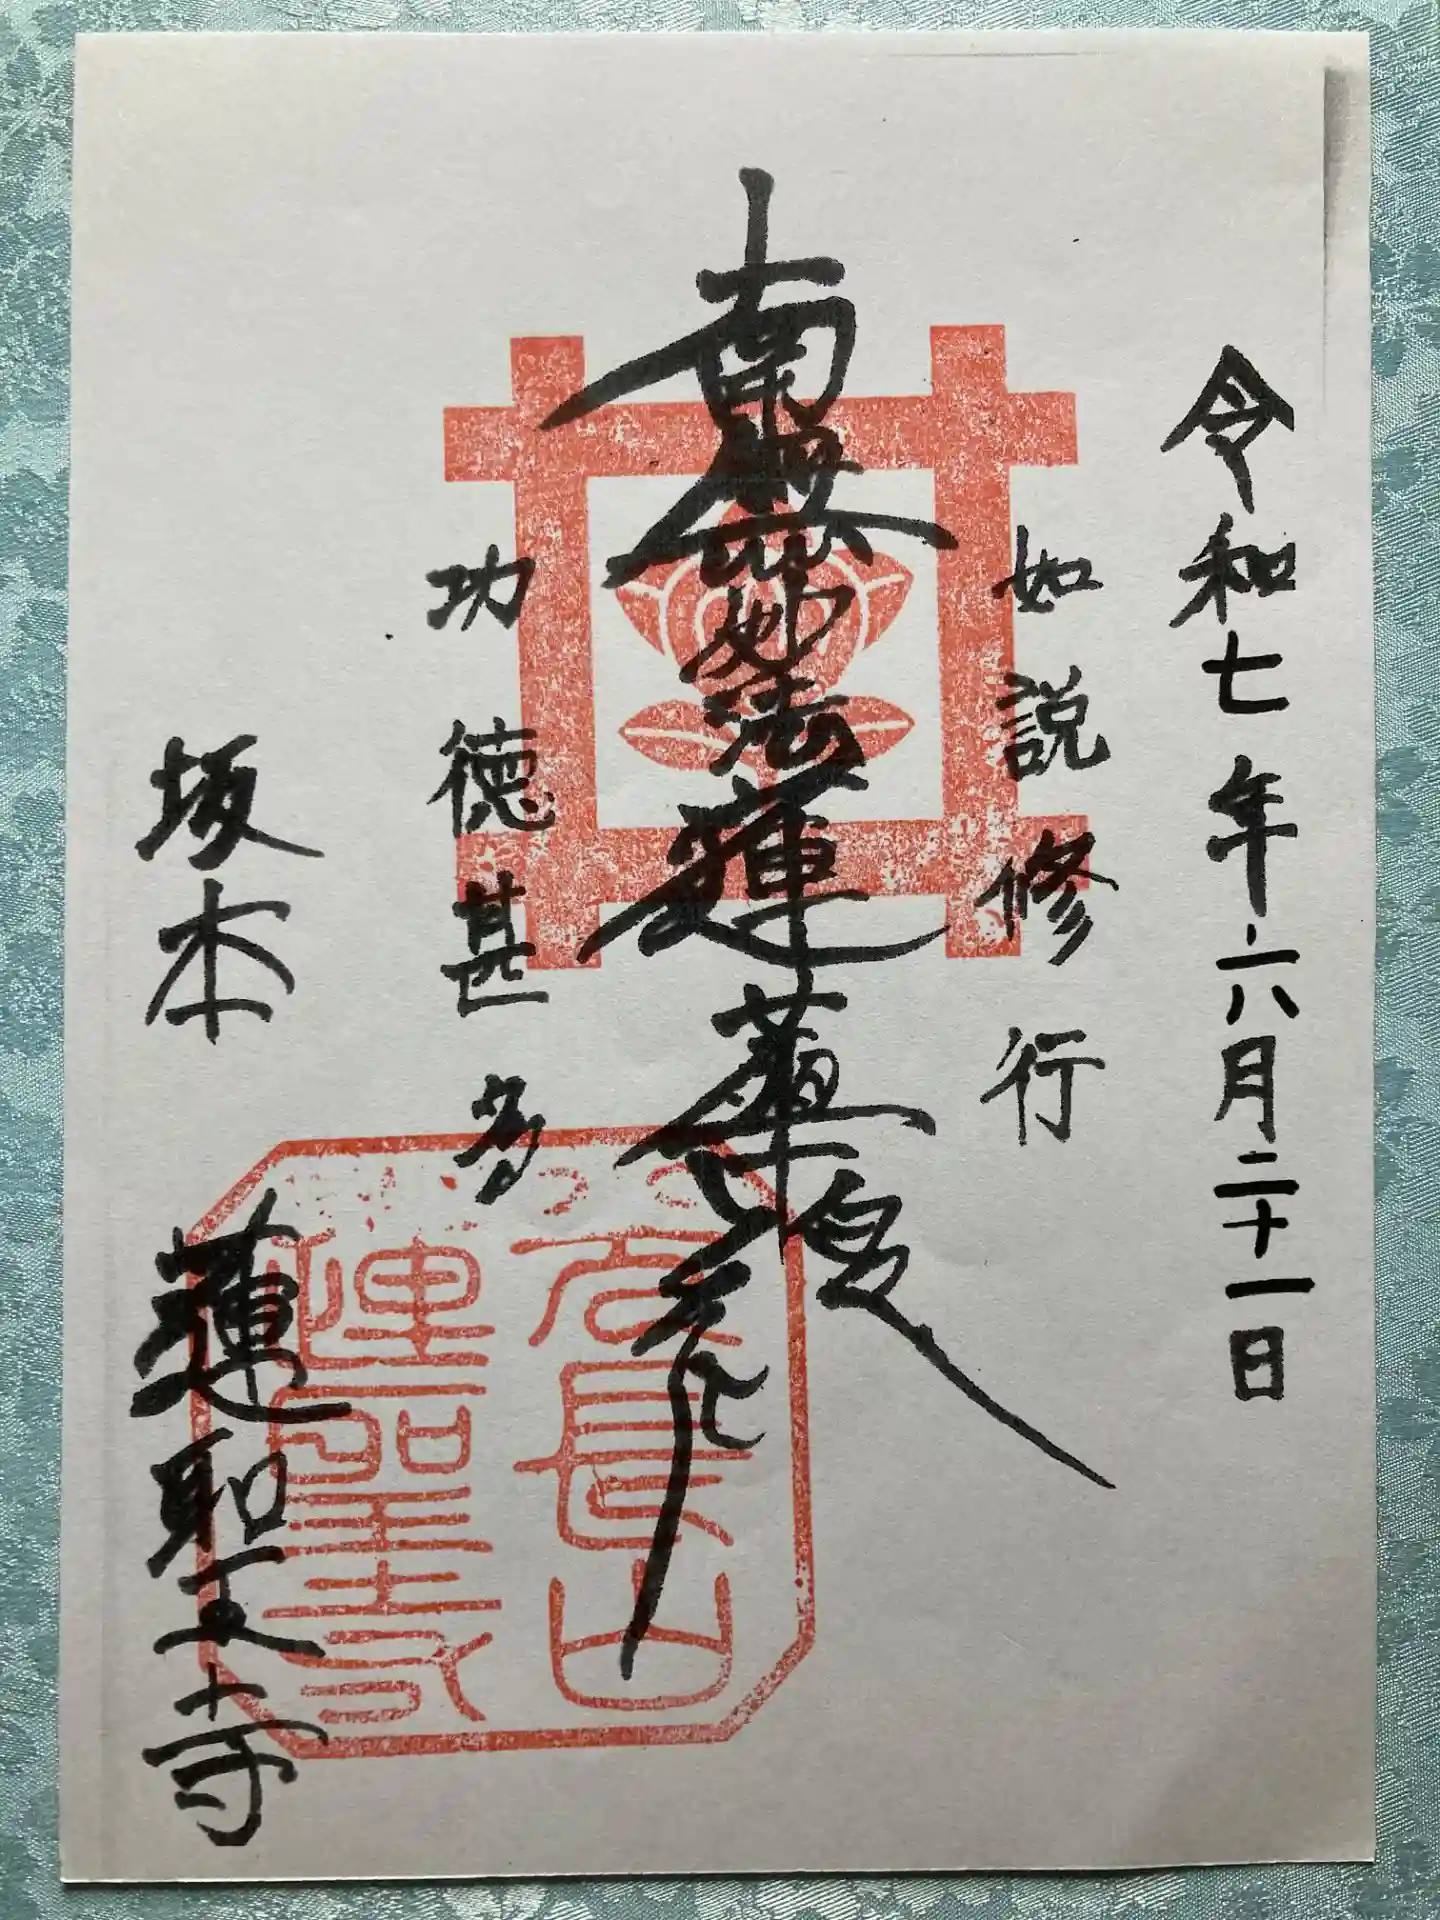 令和七年六月二十一日
如説修行
南無妙法蓮華経
功徳甚多
坂本
蓮聖寺
長山
蓮聖寺